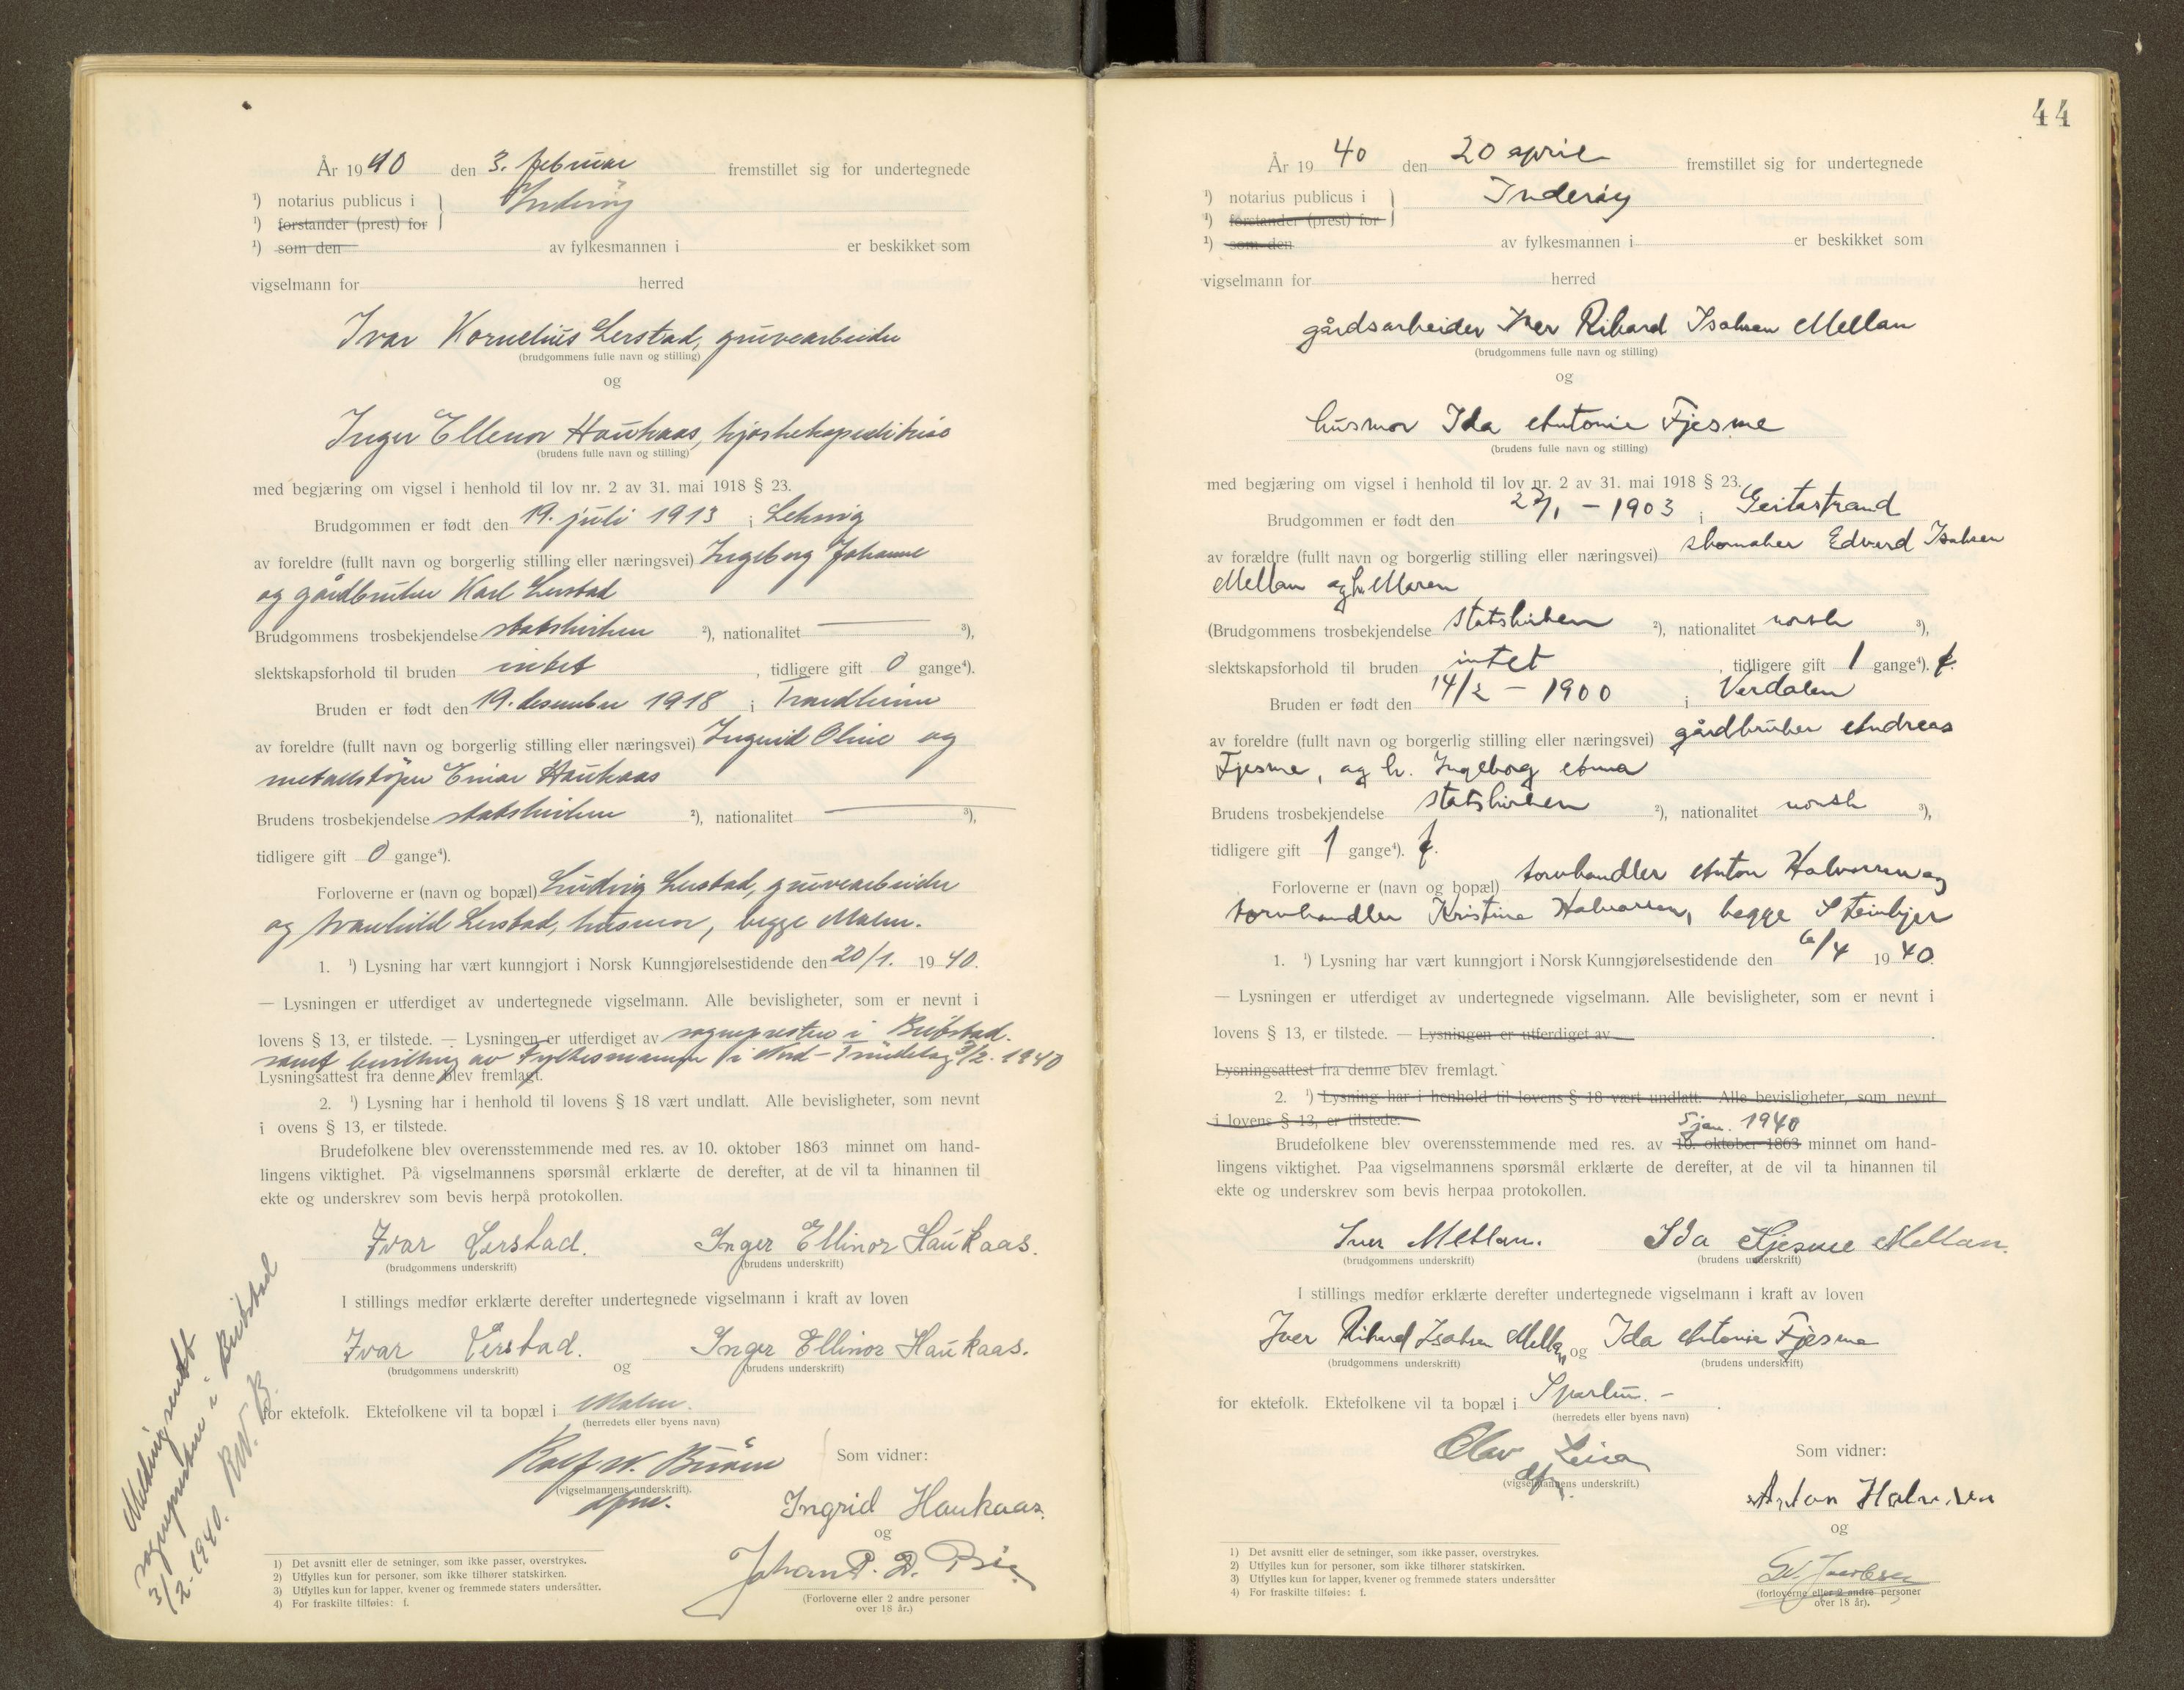 År 1940 den 3. februar fremstillet sig for undertegnede
¹) notarius publicus i Inderøy
¹) forstander (prest) for
¹) som den av fylkesmannen i er beskikket som
vigselmann for herred
Ivar Kornelius Lerstad, gruvearbeider
(brudgommens fulle navn og stilling)
og
Inger Ellenor Haukaas, kioskekspeditrise
(brudens fulle navn og stilling)
med begjæring om vigsel i henhold til lov nr. 2 av 31. mai 1918 § 23.
Brudgommen er født den 19. juli 1913 i Leksvig
av foreldre (fullt navn og borgerlig stilling eller næringsvei) Ingeborg Johanne
og gårdbruker Karl Lerstad
Brudgommens trosbekjendelse statskirken ²), nationalitet ³),
slektskapsforhold til bruden intet, tidligere gift 0 gange⁴).
Bruden er født den 19. desember 1918 i Trondheim
av foreldre (fullt navn og borgerlig stilling eller næringsvei) Ingrid Oline og
metallstøper Einar Haukaas
Brudens trosbekjendelse statskirken ²), nationalitet ³),
tidligere gift 0 gange⁴).
Forloverne er (navn og bopæl) Ludvig Lerstad, gruvearbeider
og Lerstad, husmor, begge Malm.
1. ¹) Lysning har vært kunngjort i Norsk Kunngjørelsestidende den 20/1. 1940.
— Lysningen er utferdiget av undertegnede vigselmann. Alle bevisligheter, som er nevnt i
lovens § 13, er tilstede. — Lysningen er utferdiget av sognepresten i Beitstad.
samt bevilling av Fylkesmannen i Nord-Trøndelag 3/2. 1940
Lysningsattest fra denne blev fremlagt.
2. ¹) Lysning har i henhold til lovens § 18 vært undlatt. Alle bevisligheter, som nevnt
i ovens § 13, er tilstede.
Brudefolkene blev overensstemmende med res. av 10. oktober 1863 minnet om hand-
lingens viktighet. På vigselmannens spørsmål erklærte de derefter, at de vil ta hinannen til
ekte og underskrev som bevis herpå protokollen.
Ivar Lerstad. Inger Ellinor Haukaas.
(brudgommens underskrift) (brudens underskrift)
I stillings medfør erklærte derefter undertegnede vigselmann i kraft av loven
Ivar Lerstad. og Inger Ellinor Haukaas.
(brudgommens underskrift) (brudens underskrift)
for ektefolk. Ektefolkene vil ta bopæl i Malm.
(herredets eller byens navn)
Rolf W. Som vidner:
(vigselmannens underskrift).
dfm.
Ingrid Haukaas.
og
Johan P. D.
(Forloverne eller 2 andre personer
over 18 år.)
1) Det avsnitt eller de setninger, som ikke passer, overstrykes.
2) Utfylles kun for personer, som ikke tilhører statskirken.
3) Utfylles kun for lapper, kvener og fremmede staters undersåtter.
4) For fraskilte tilføies: f.
Melding sendt
sognepresten i Beitstad
3/2-1940. RW. B.
44
År 1940 den 20 april fremstillet sig for undertegnede
¹) notarius publicus i Inderøy
¹) forstander (prest) for
¹) som den av fylkesmannen i er beskikket som
vigselmann for herred
gårdsarbeider Iver Rikard Isaksen Mellan
(brudgommens fulle navn og stilling)
og
husmor Ida Antonie Fjesme
(brudens fulle navn og stilling)
med begjæring om vigsel i henhold til lov nr. 2 av 31. mai 1918 § 23.
Brudgommen er født den 27/1 - 1903 i Geitastrand
av forældre (fullt navn og borgerlig stilling eller næringsvei) skomaker Edvard Isaksen
Mellan og h. Maren
(Brudgommens trosbekjendelse statskirken ²), nationalitet norsk ³),
slektskapsforhold til bruden intet, tidligere gift 1 gange⁴). f.
Bruden er født den 14/2 - 1900 i Verdalen
av foreldre (fullt navn og borgerlig stilling eller næringsvei) gårdbruker Andreas
Fjesme, og h. Ingeborg Anna
Brudens trosbekjendelse statskirken ²), nationalitet norsk ³),
tidligere gift 1 gange⁴). f.
Forloverne er (navn og bopæl) torvhandler Anton Halvorsen og
torvhandler Kristine Halvorsen, begge Steinkjer
1. ¹) Lysning har vært kunngjort i Norsk Kunngjørelsestidende den 6/4 1940.
— Lysningen er utferdiget av undertegnede vigselmann. Alle bevisligheter, som er nevnt i
lovens § 13, er tilstede. — Lysningen er utferdiget av
Lysningsattest fra denne blev fremlagt.
2. ¹) Lysning har i henhold til lovens § 18 vært undlatt. Alle bevisligheter, som nevnt
i lovens § 13, er tilstede.
5 jan. 1940
Brudefolkene blev overensstemmende med res. av 10. oktober 1863 minnet om hand-
lingens viktighet. Paa vigselmannens spørsmål erklærte de derefter, at de vil ta hinannen til
ekte og underskrev som bevis herpaa protokollen.
Iver Mellan. Ida Fjesme Mellan.
(brudgommens underskrift) (brudens underskrift)
I stillings medfør erklærte derefter undertegnede vigselmann i kraft av loven
Iver Rikard Isaksen Mellan og Ida Antonie Fjesme
(brudgommens underskrift) (brudens underskrift)
for ektefolk. Ektefolkene vil ta bopæl i Sparbu. -
(herredets eller byens navn)
Olav Som vidner:
(vigselmannens underskrift.)
Anton Halvorsen
og
Jacobsen
(forloverne eller 2 andre personer
over 18 år).
1) Det avsnitt eller de setninger, som ikke passer, overstrykes.
2) Utfylles kun for personer, som ikke tilhører statskirken.
3) Utfylles kun for lapper, kvener og fremmede staters undersåtter
4) For fraskilte tilføies: f.